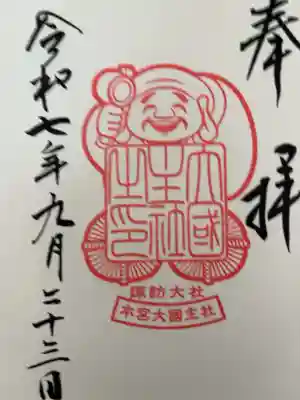 奉拝
大國
主社
之印
諏訪大社
本宮大國主社
令和七年九月二十三日